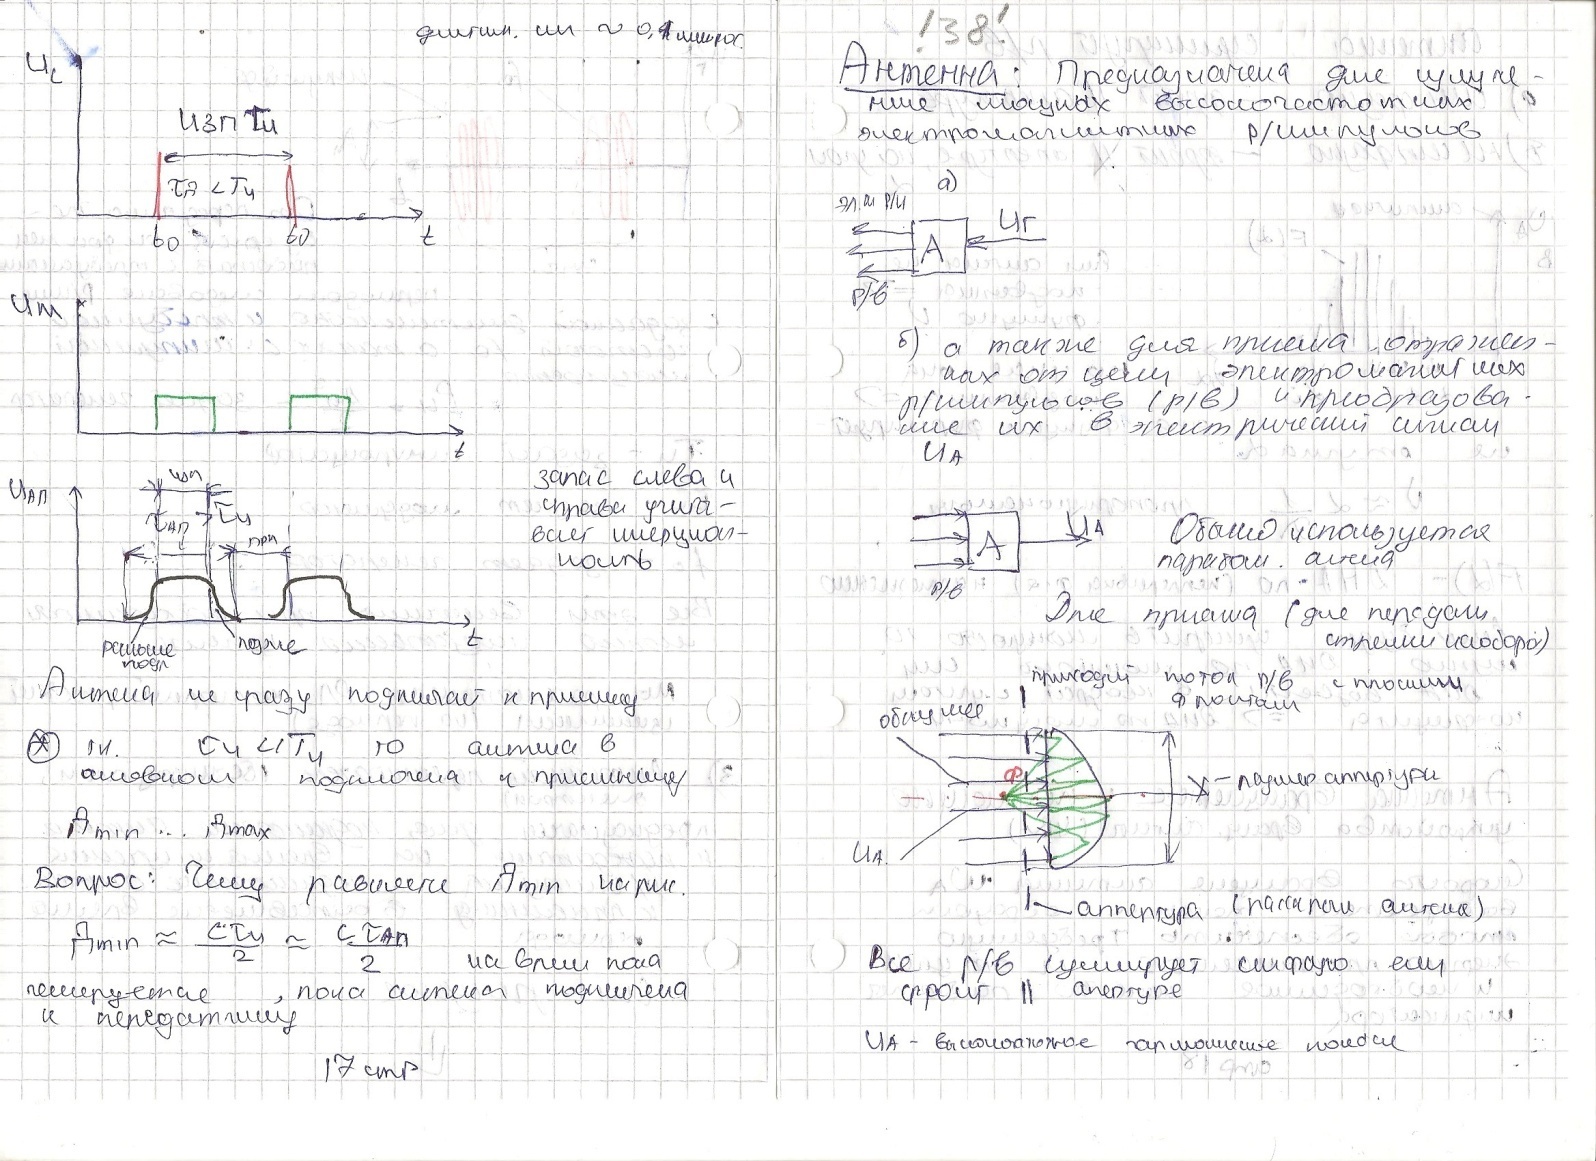 длительн. ~ 0,1 микрос.
Uс
ИЗП Tи
τд < Tи
t0
t0
t
Uм
t
Uап
изп
τи
τап
при
t
раньше подкл
позже
запас слева и
справа учиты-
вает инерцион-
ность
Антена не сразу подключает к приемнику
* т.к. τи << Tи то антена в
основном подключена к приемнику
Дmin ... Дmax
Вопрос: Чему равняется Дmin на рис.
Дmin ≈ cτи/2 ≈ cτап/2 на время пока
генерируется, пока антена подключена
к передатчику
17 стр
!38!
Антенна: Предназначена для излуче-
ние мощных высокочастотных
электромагнитных р/импульсов
а)
эл.м р/и
А
Uг
р/в
б) а также для приема отражен-
ных от цели электромагнитных
р/импульсов (р/в) и преобразова-
ние их в электрический сигнал
UА
А
UА
р/в
Обычно используется
парабол. антена
Для приема (для передачи
стрелки наоборот)
приходит поток р/в с плоским
фронтом
облучение
Ф
X - размер аппертуры
UА.
аппертура (раскрыв антены)
Все р/в суммирует синфазно если
фронт || апертуре
UА - высокочастотное гармоничное колебание